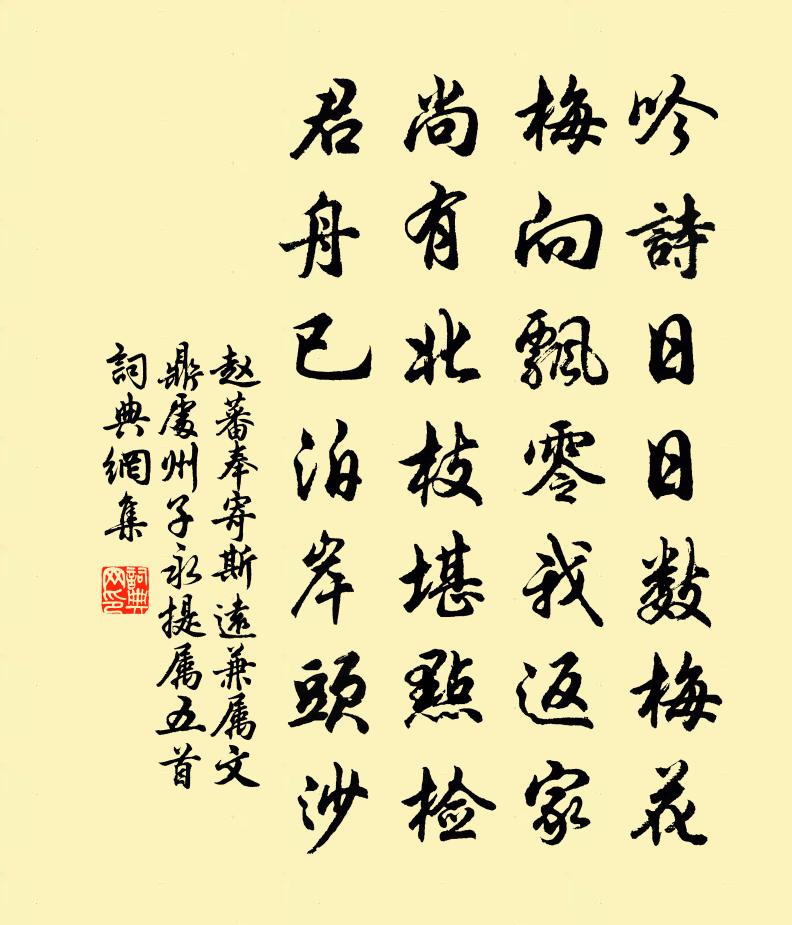 吟詩日日數梅花
梅向飄零我返家
尚有北枝堪點檢
君舟已泊岸頭沙
赵蕃奉寄斯遠兼属文
鼎處州子永提属五首
詞典網集
詞典
网印